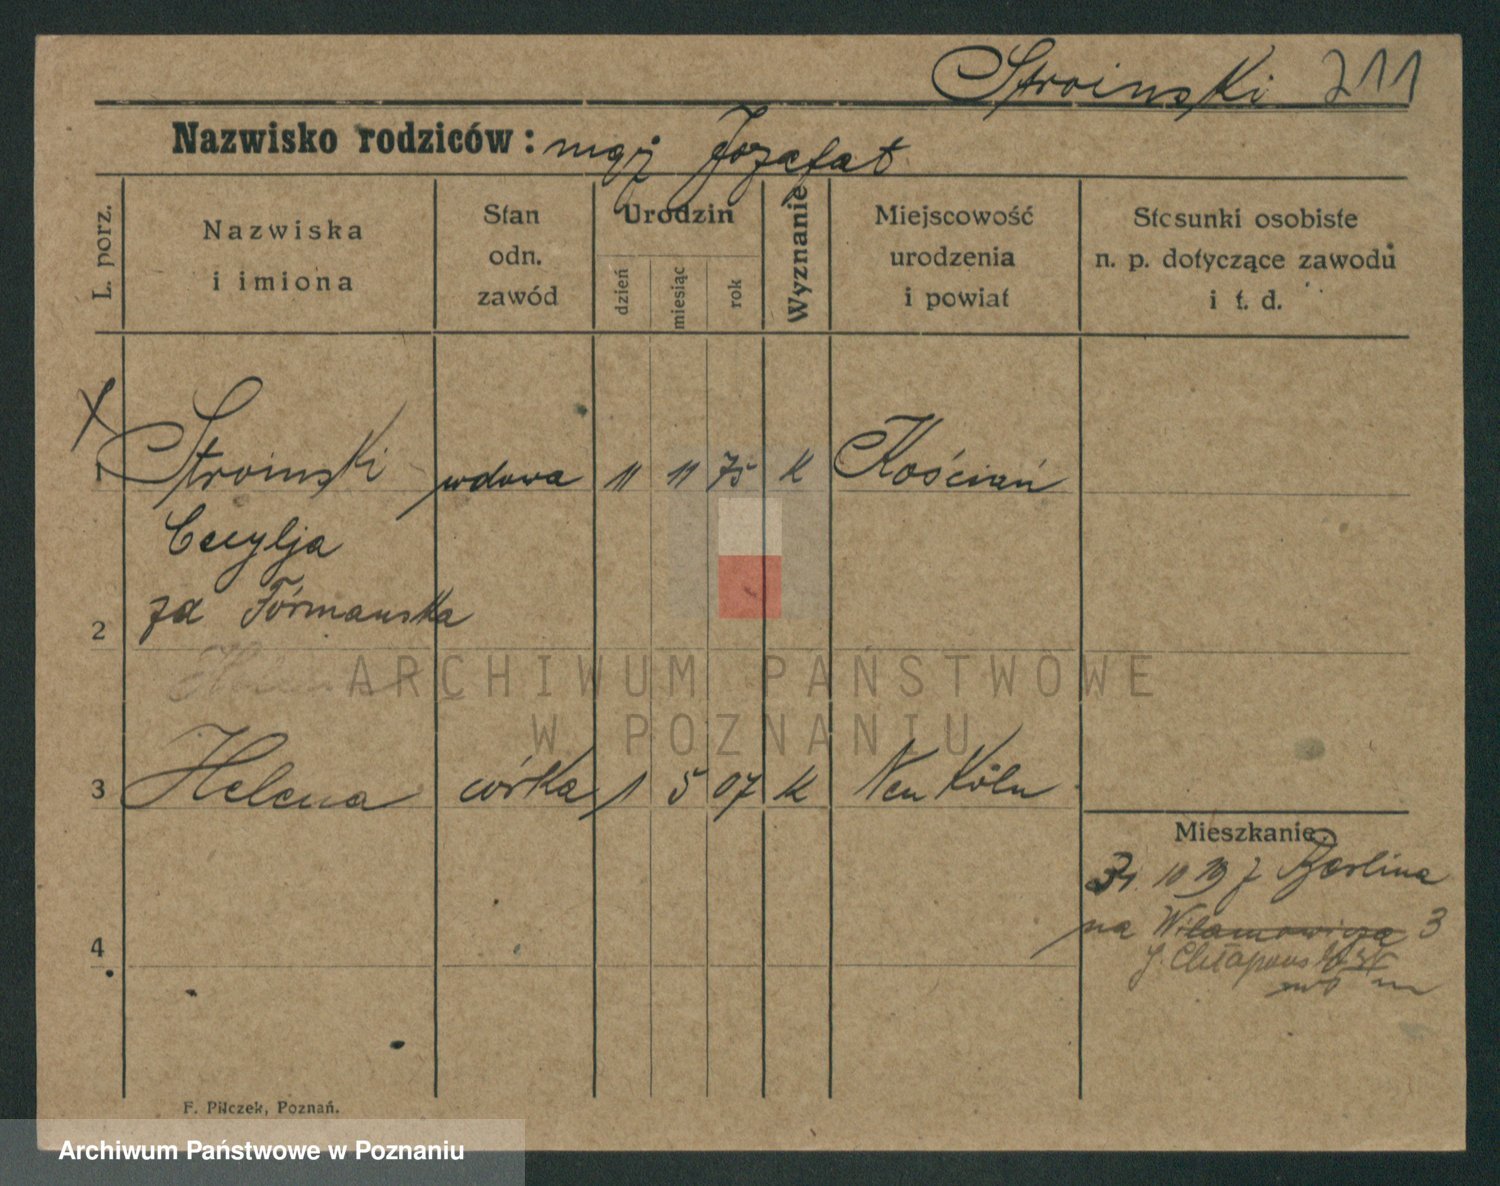 Stroinski 211
Nazwisko rodziców: mąż Jozefat
L. porz.
Nazwiska
i imiona
Stan
odn.
zawód
Urodzin
dzień
miesiąc
rok
Wyznanie
Miejscowość
urodzenia
i powiat
Stosunki osobiste
n. p. dotyczące zawodu
i t. d.
1 Stroinski wdowa 11 11 75 k Kościan
Cecylja
2 zd Formanska
ARCHIWUM PAŃSTWOWE
W POZNANIU
3 Helena córka 1 5 07 k Neu Köln
Mieszkanie:
31. 10 19 z Berlina
4 na 3
F. Pilczek, Poznań.
Archiwum Państwowe w Poznaniu